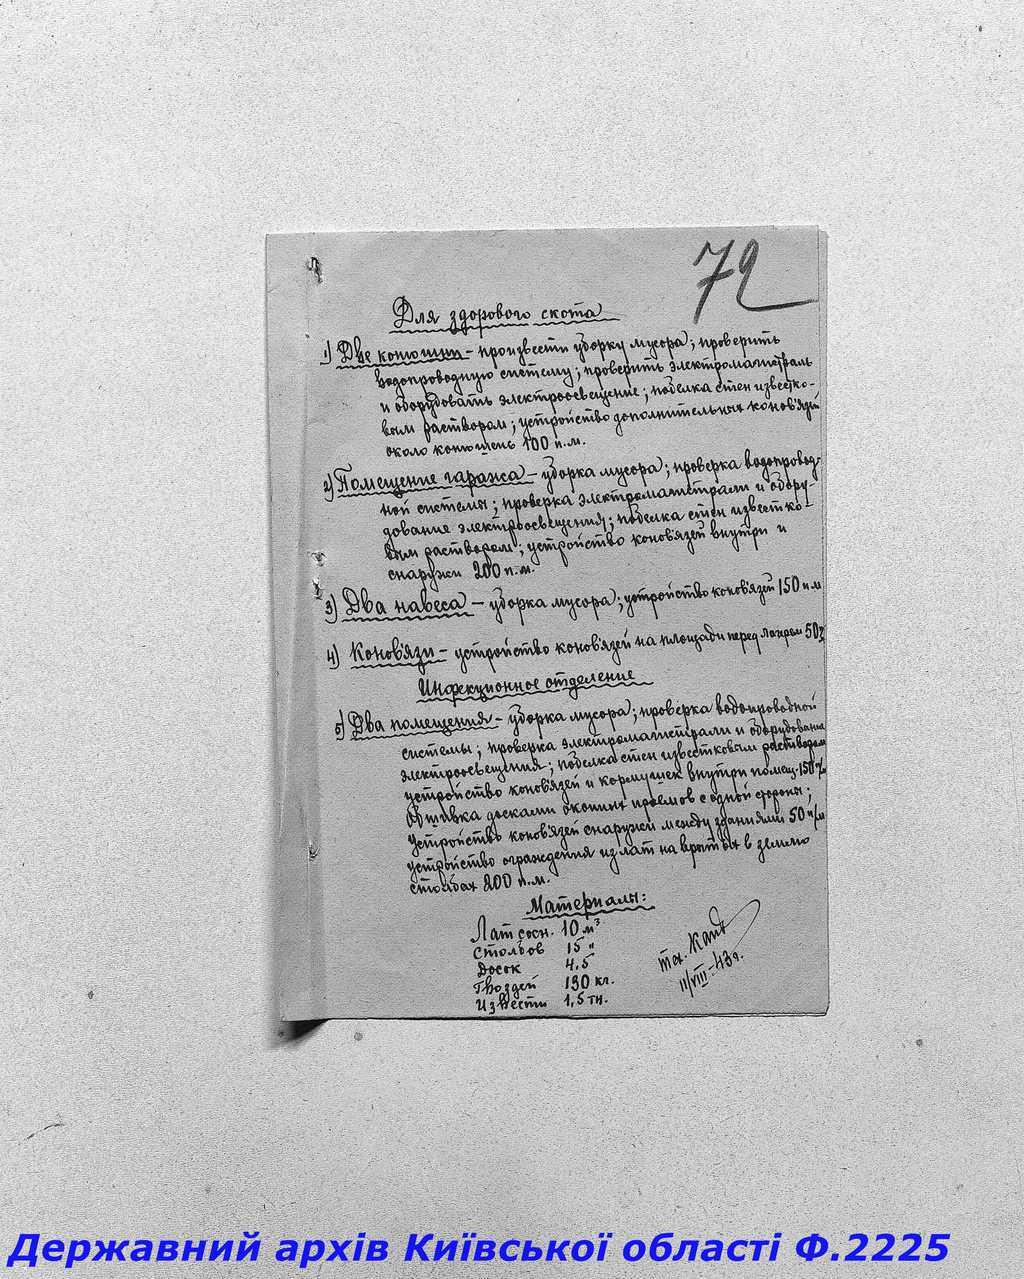 72
Для здорового скота
1) Две конюшни – произвести уборку мусора; проверить
водопроводную систему; проверить электромагистраль
и оборудовать электроосвещение; побелка стен известко-
вым раствором; устройство дополнительных конов'язей
около конюшень 100 п.м.
2) Помещение гаража – уборка мусора; проверка водопровод-
ной системы; проверка электромагистрали и обору-
дование электроосвещения; побелка стен известко-
вым раствором; устройство конов'язей внутри и
снаружи 200 п.м.
3) Два навеса – уборка мусора; устройство конов'язей 150 п.м
4) Конов'язи – устройство конов'язей на площади перед 50
Инфекционное отделение
5) Два помещения – уборка мусора; проверка водопроводной
системы; проверка электромагистрали и оборудование
электроосвещения; побелка стен известковым раствором
устройство конов'язей и кормушек внутри помещ. 150 п/м
обшивка досками оконных проемов с одной стороны;
устройство конов'язей снаружи между зданиями 50 п/м
устройство ограждения из лат на врытых в землю
столбах 200 п.м.
Материалы:
Лат сосн. 10 м³
Столбов 15 "
Досок 4,5
Гвоздей 130 кг.
Извести 1,5 тн.
11/VIII–43 г.
Державний архів Київської області Ф.2225